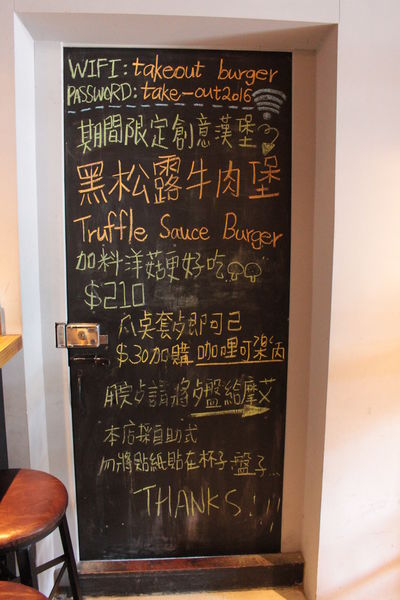 WIFI: takeout burger
PASSWORD: take-out2016
期間限定創意漢堡
黑松露牛肉堡
Truffle Sauce Burger
加料洋菇更好吃
$210
瓜桌套点即可己
$30加購 咖哩可樂餅
用完点請將点盤給摩艾
本店採自助式
勿將貼紙貼在杯子.盤子...
THANKS!!!